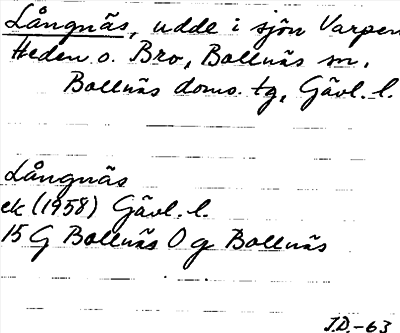 Långnäs, udde i sjön Varpen
Heden o. Bro, Bollnäs sn.
Bollnäs doms. tg, Gävl. l.
Långnäs
ek (1958) Gävl. l.
15 G Bollnäs O g Bollnäs
J.D.-63